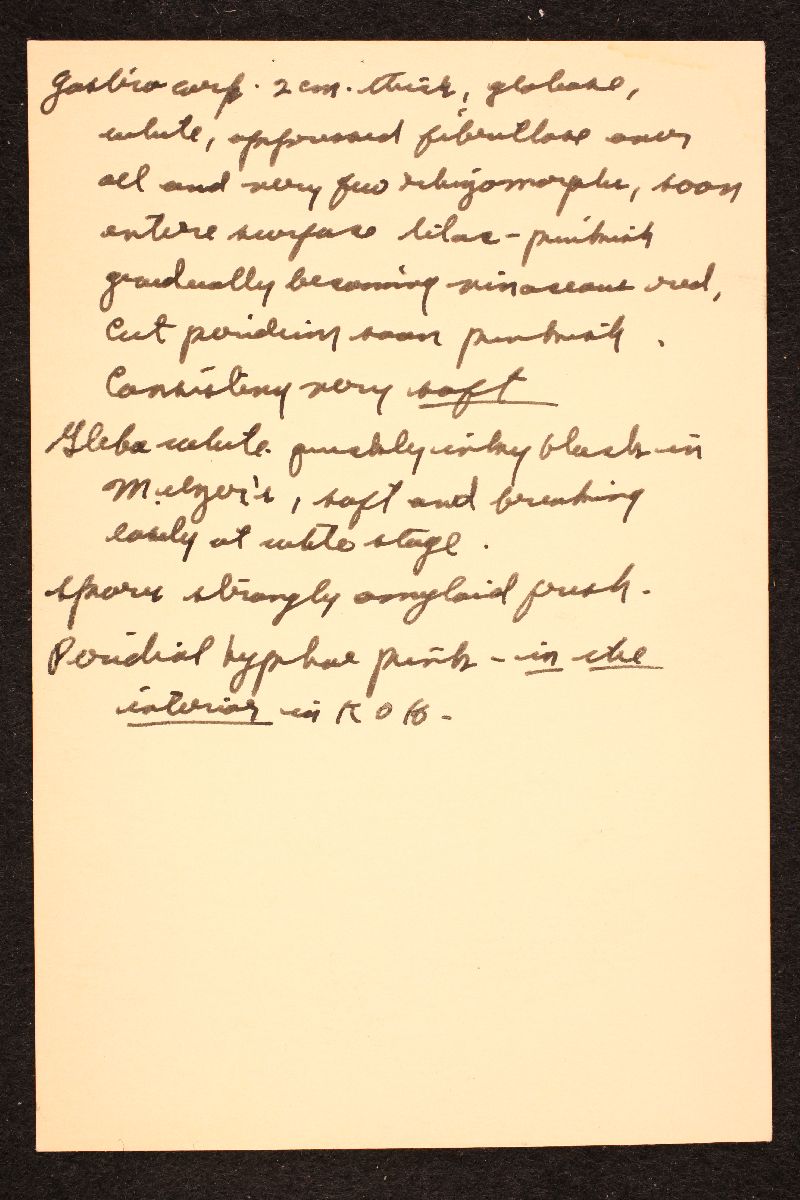 Gastrocarp. 2 cm. thick, globose,
white, appressed fibrillose over
all and very few rhizomorphs, soon
entire surface lilac-pinkish
gradually becoming vinaceous red,
Cut peridium soon pinkish.
Consisteny very soft
Gleba white quickly inky black in
Melzer's, soft and breaking
easily at white stage.
Spores strongly amyloid fresh.
Peridial hyphae pink - in the
interior in KOH-